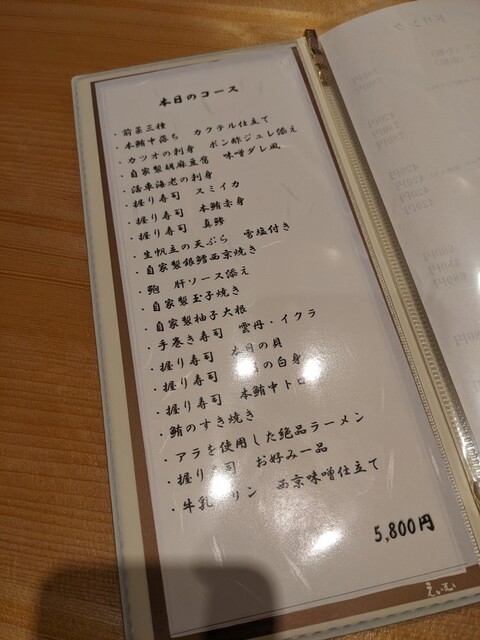 本日のコース
・前菜三種
・本鮪中落ち カクテル仕立て
・カツオの刺身 ポン酢ジュレ添え
・自家製胡麻豆腐 味噌ダレ風
・活車海老の刺身
・握り寿司 スミイカ
・握り寿司 本鮪赤身
・握り寿司 真鯵
・生帆立の天ぷら 雪塩付き
・自家製銀鱈西京焼き
・鮑 肝ソース添え
・自家製玉子焼き
・自家製柚子大根
・手巻き寿司 雲丹・イクラ
・握り寿司 本日の貝
・握り寿司 の白身
・握り寿司 本鮪中トロ
・鮪のすき焼き
・アラを使用した絶品ラーメン
・握り寿司 お好み一品
・牛乳プリン 西京味噌仕立て
5,800円
ドリンク